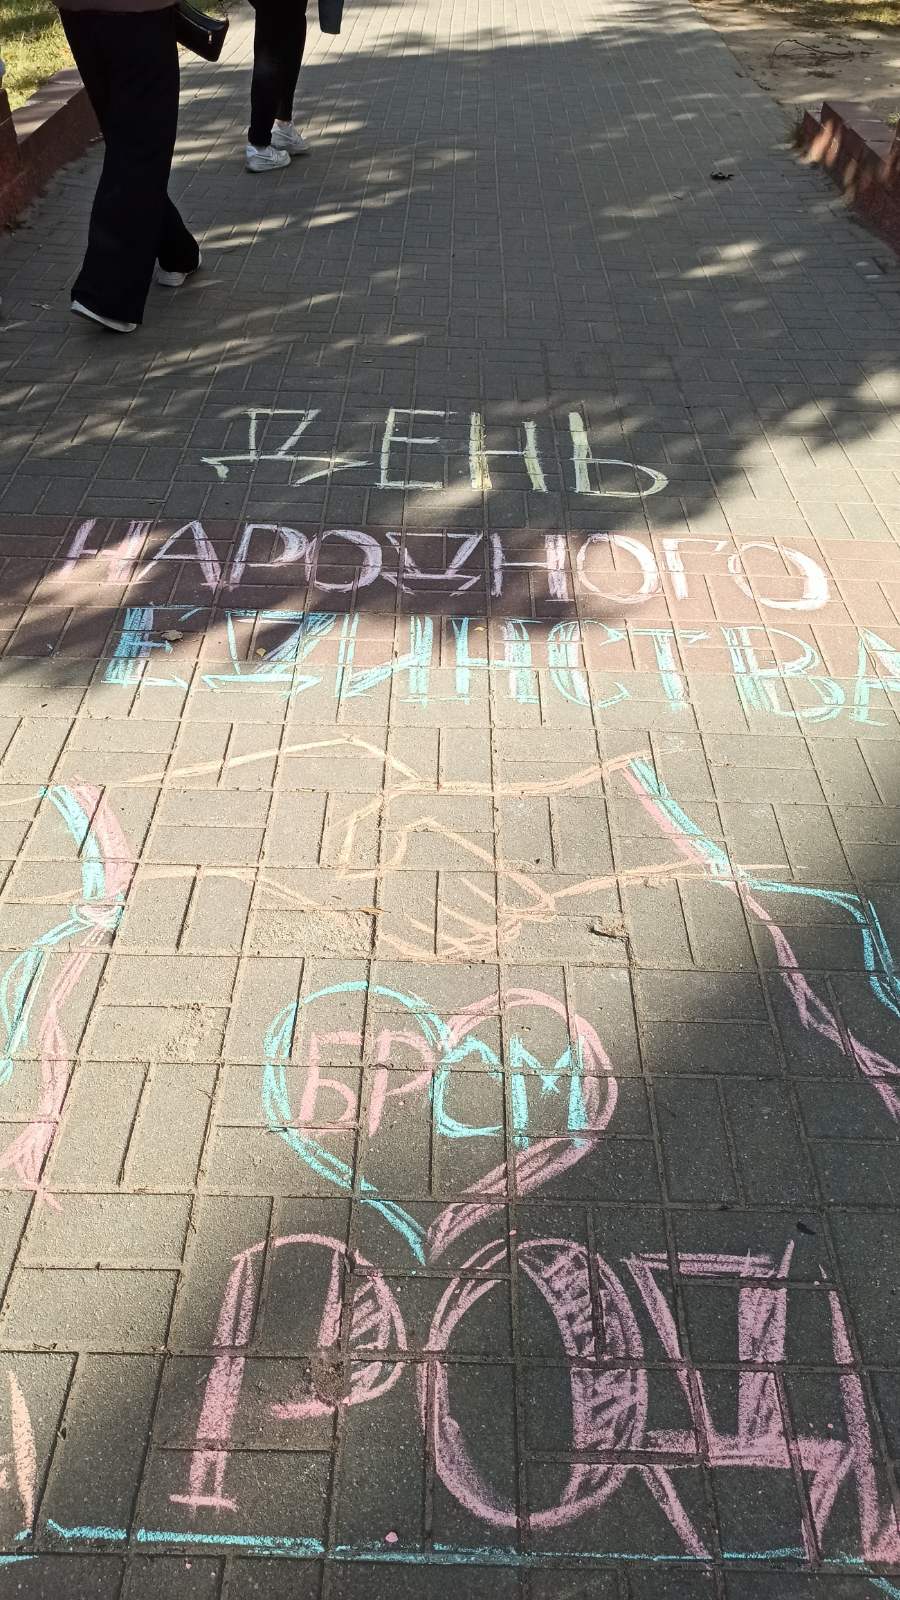 ДЕНЬ
НАРОДНОГО
ЕДИНСТВА
БРСМ